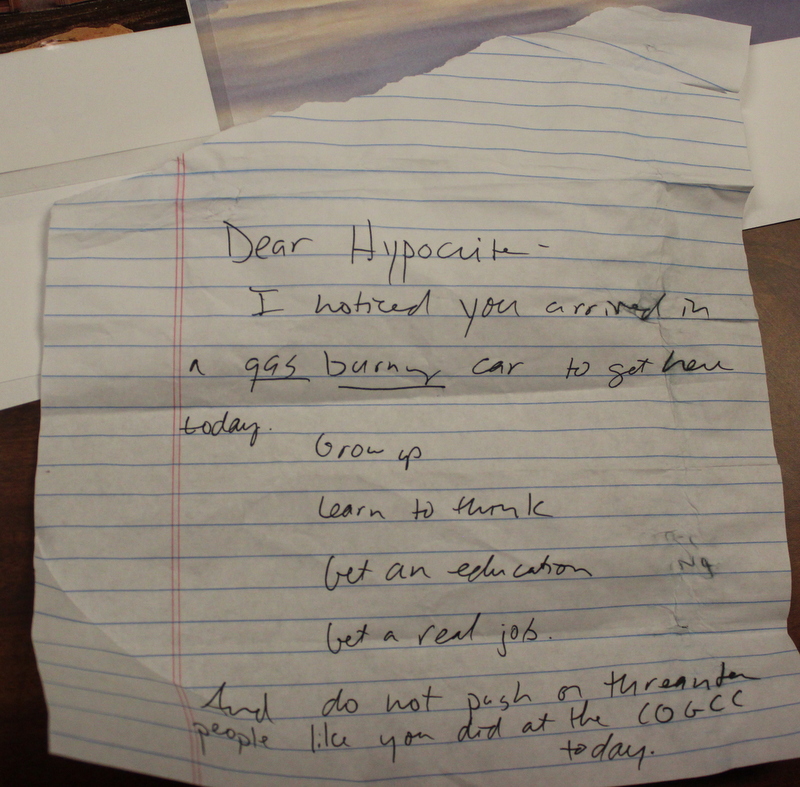 Dear Hypocrite-
I noticed you arrived in
a gas burning car to get here
today.
Grow up
learn to think
Get an education
Get a real job.
And do not push or threanten
people like you did at the COGCC
today.